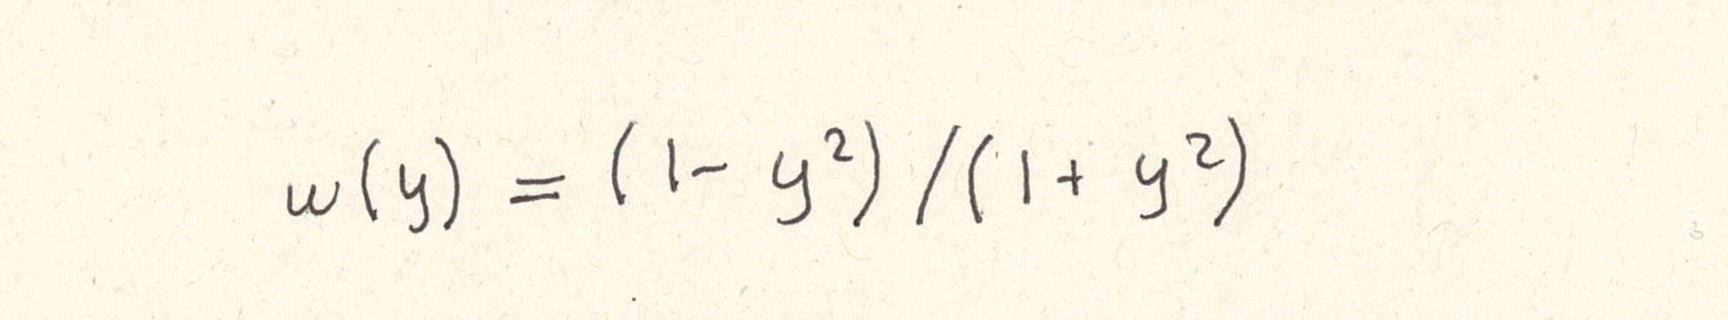 w(y) = (1 - y²) / (1 + y²)